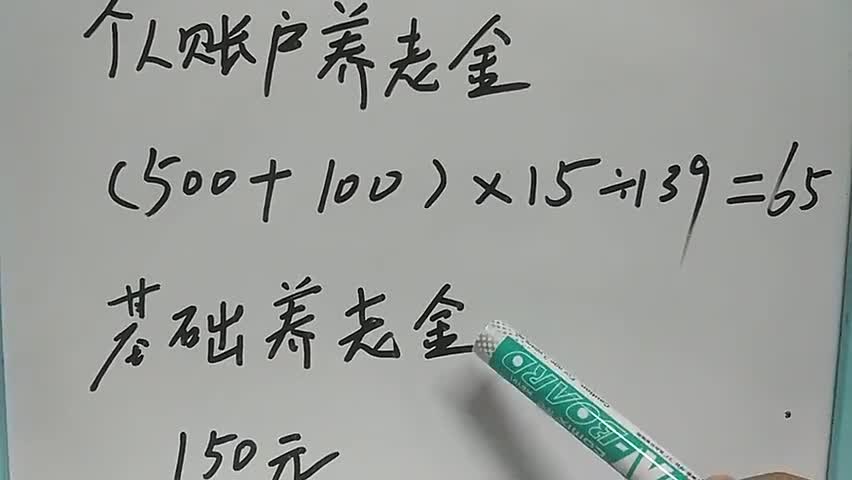 个人账户养老金
(500+100)×15÷139=65
基础养老金
150元